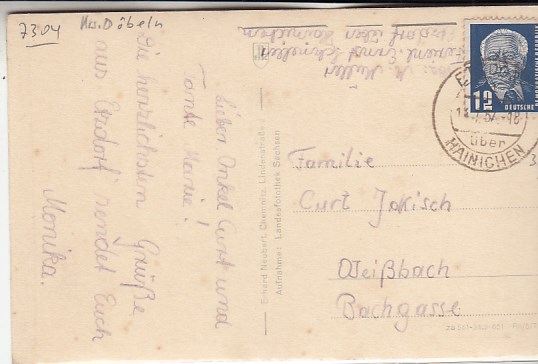 7304 Kr. Döbeln
Lieber Onkel Curt und
Tante Marie!
Die herzlichsten Grüße
aus Etzdorf sendet Euch
Monika.
Erhard Neubert, Chemnitz, Lindenstraße
Aufnahme: Landesfotothek Sachsen
Ernst Schneller
12
DEUTSCHE
über
HAINICHEN
Familie
Curt Jakisch
Weißbach
Bachgasse